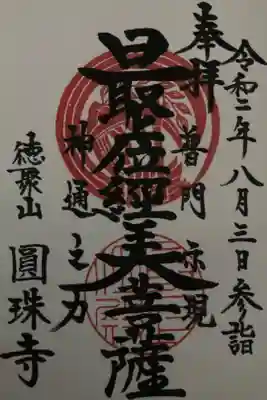 令和二年八月三日参詣
奉拝
普門示現
最位經美菩薩
神通之力
徳聚山
圓珠寺